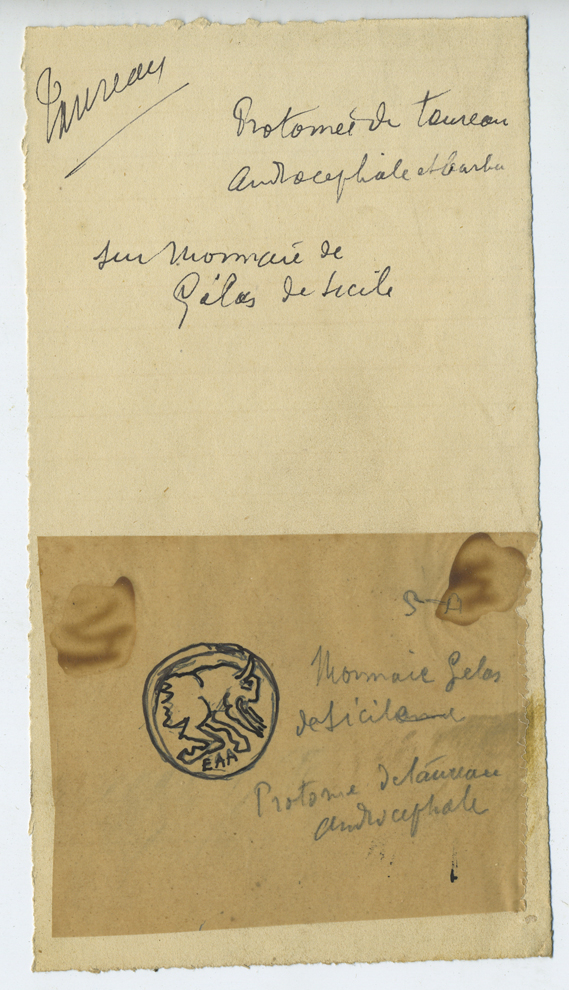 Taureau
Protomée de taureau
Androcephale et barbu
sur Monnaie de
Gélas de Sicile
5-A
Monnaie Gelas
de Sicile
EAA
Protome de taureau
androcephale